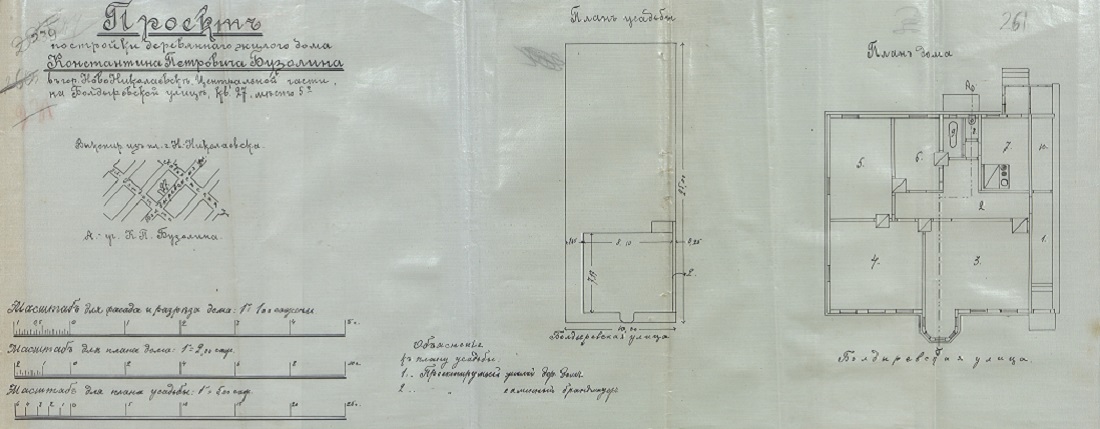 Проектъ
постройки деревяннаго жилого дома
Константина Петровича Бузолина
въ гор. НовоНиколаевскѣ, Центральной части,
на Болдыревской улицѣ, кв. 27, мѣсто 5.
Выкопир. изъ пл. г. Н.-Николаевска.
27
А.- уч. К. П. Бузолина.
Масштабъ для фасада и разрѣза дома: 1"=1.00 саженъ
1 0,5 0 1 2 3 4 5 с.
Масштабъ для плана дома: 1"=2,00 саж.
2 1 0 2 4 6 8 10 с.
Масштабъ для плана усадьбы: 1"=5.00 саж.
5 4 3 2 1 0 5 10 15 20 25 с.
Планъ усадьбы
25,00
8,10
0,25
2.
10,00
Болдыревская улица
Объясненіе
къ плану усадьбы.
1.. Проектируемый жилой дер. домъ
2.. " каменный брандмауэръ
261
Планъ дома
5.
6.
7.
2
4.
3.
1.
Болдыревская улица.